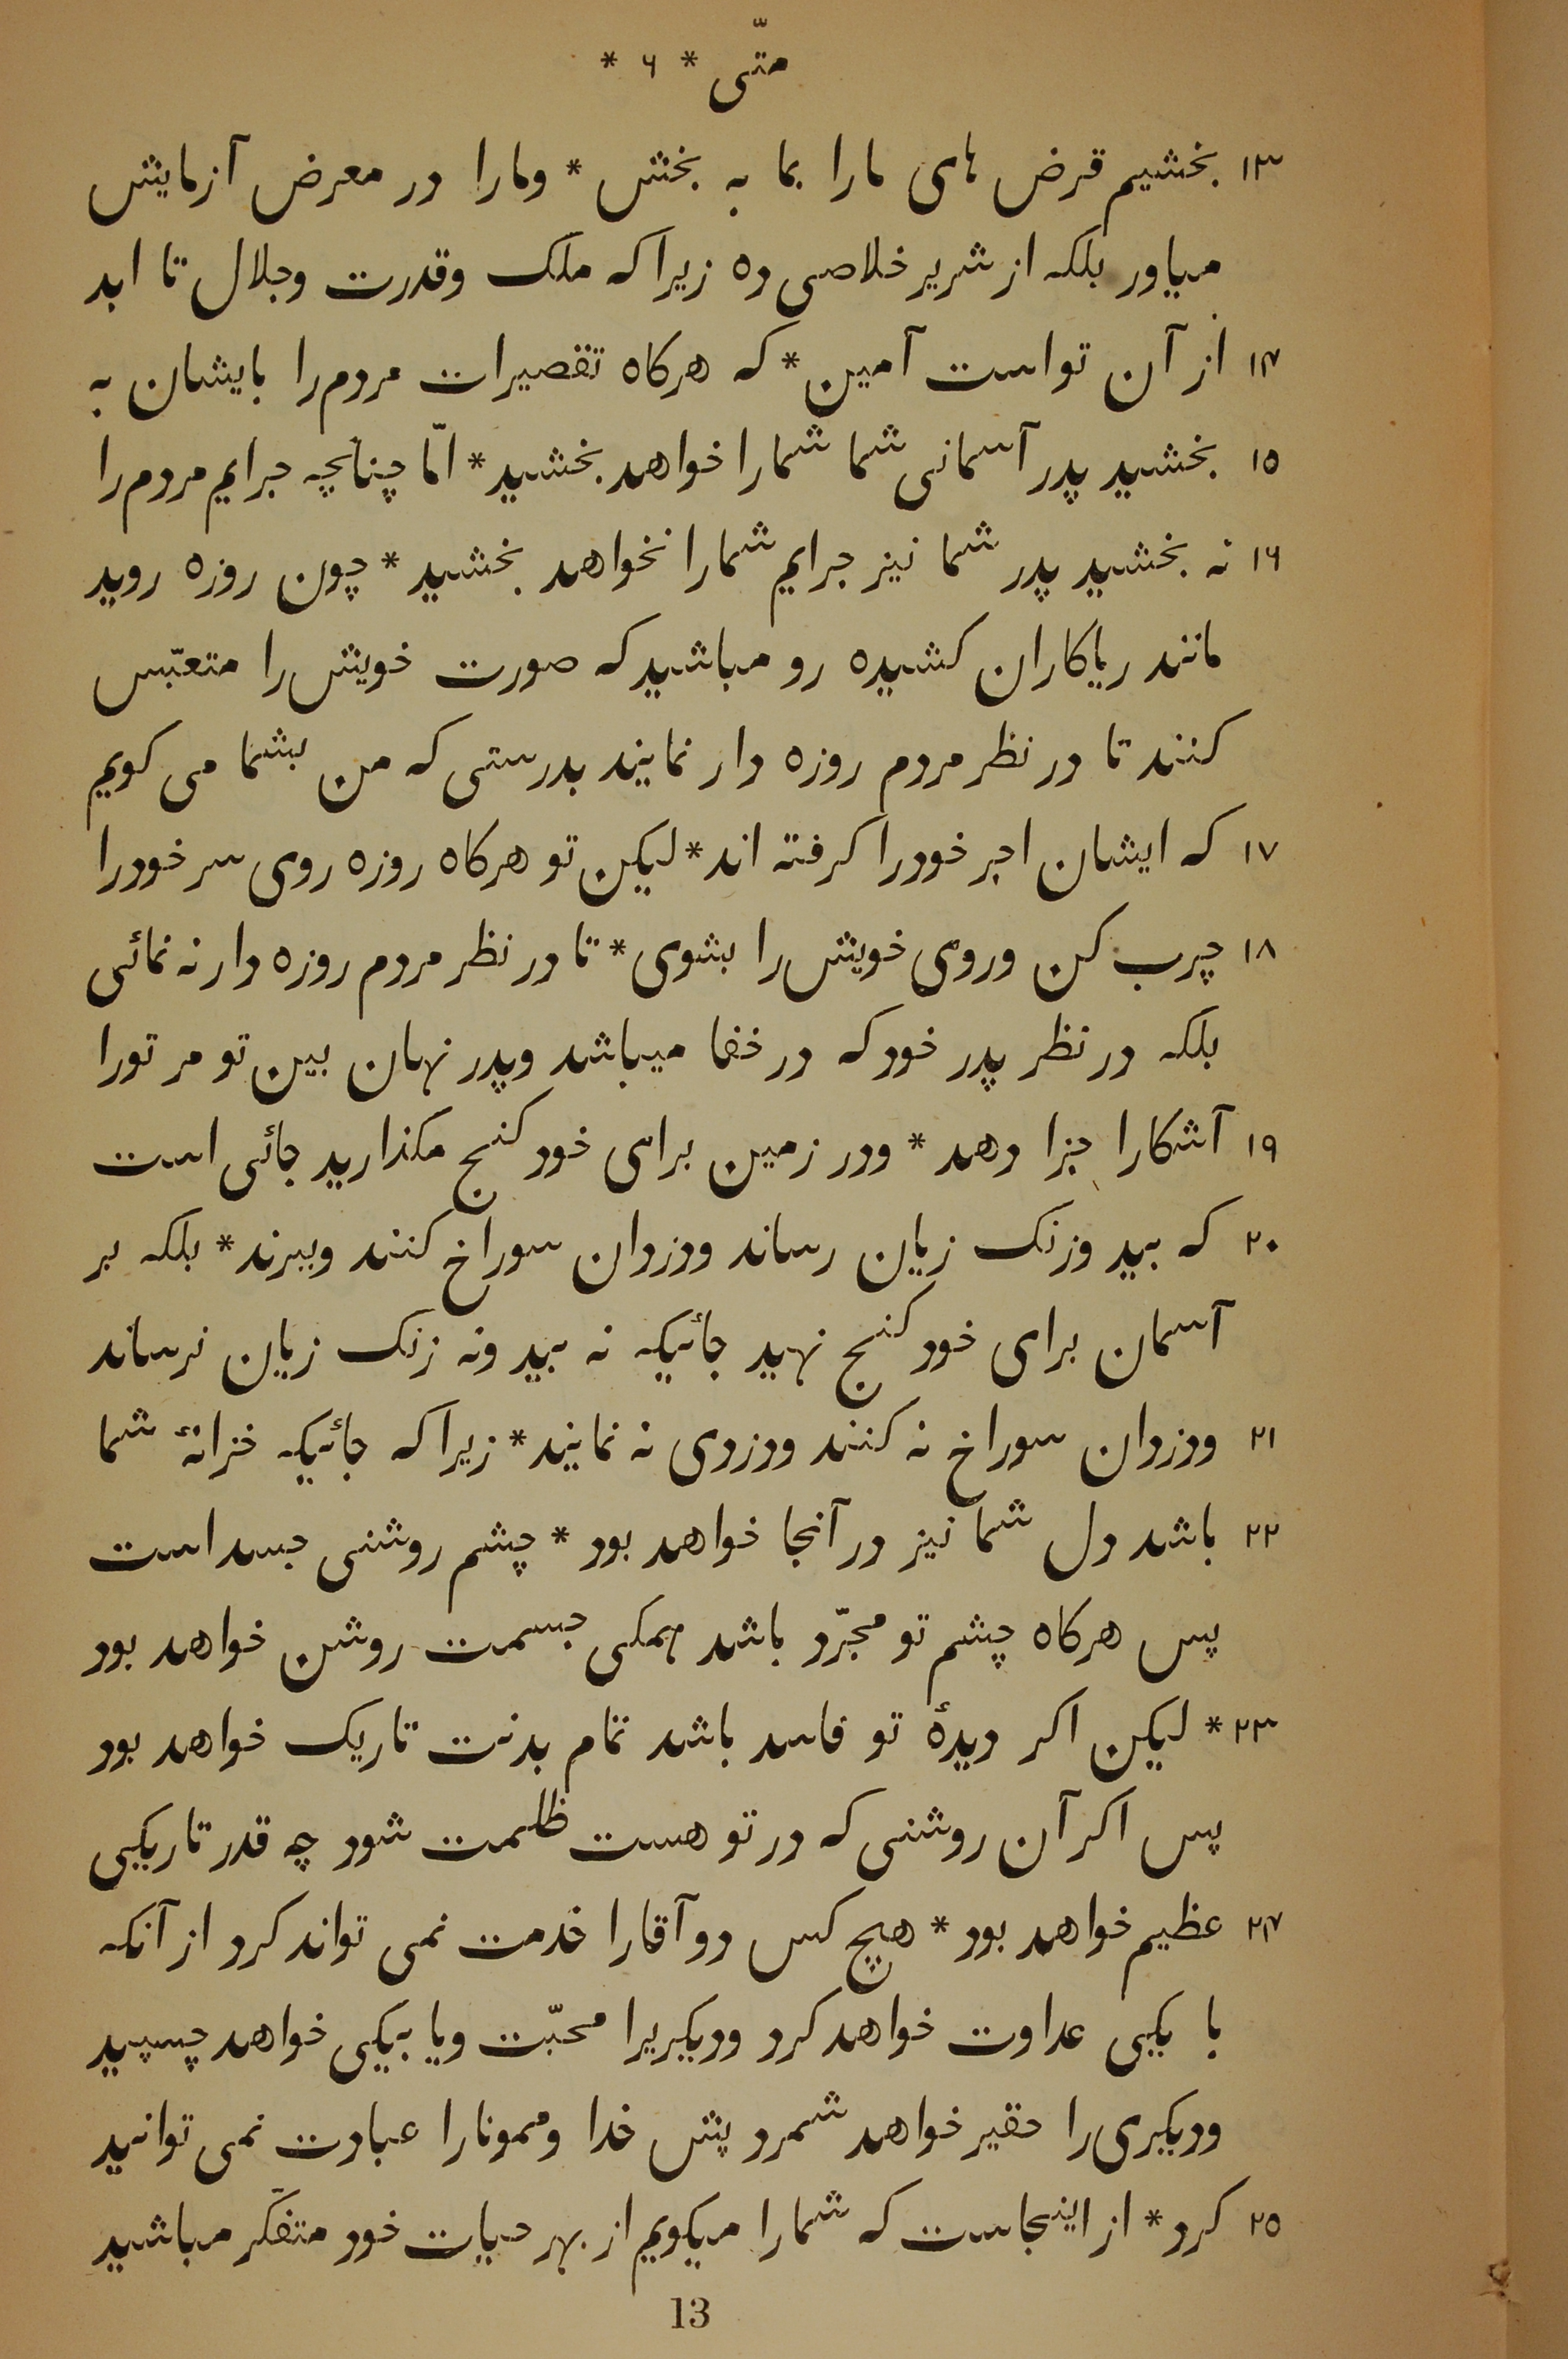 متّی * ۶ *
۱۳ بخشیم قرض های مارا بما به بخش * ومارا در معرض آزمایش
میاور بلکه از شریر خلاصی ده زیرا که ملک وقدرت وجلال تا ابد
۱۴ از آن تو است آمین * که هرکاه تقصیرات مردم را بایشان به
۱۵ بخشید پدر آسمانی شما شمارا خواهد بخشید * امّا چنانچه جرایم مردم را
۱۶ نه بخشید پدر شما نیز جرایم شمارا نخواهد بخشید * چون روزه روید
مانند ریاکاران کشیده رو مباشید که صورت خویش را متعبّس
کنند تا در نظر مردم روزه دار نمایند بدرستی که من بشما می کویم
۱۷ که ایشان اجر خودرا کرفته اند * لیکن تو هرکاه روزه روی سر خودرا
۱۸ چرب کن وروی خویش را بشوی * تا در نظر مردم روزه دار نه نمائی
بلکه در نظر پدر خود که در خفا میباشد وپدر نهان بین تو مر تورا
۱۹ آشکارا جزا دهد * ودر زمین برای خود کنج مکذارید جائی است
۲۰ که بید وزنک زیان رساند ودزدان سوراخ کنند وببرند * بلکه بر
آسمان برای خود کنج نهید جائیکه نه بید ونه زنک زیان نرساند
۲۱ ودزدان سوراخ نه کنند ودزدی نه نمایند * زیرا که جائیکه خزانهٔ شما
۲۲ باشد دل شما نیز در آنجا خواهد بود * چشم روشنی جسد است
پس هرکاه چشم تو مجرّد باشد همکی جسمت روشن خواهد بود
۲۳ * لیکن اکر دیدهٔ تو فاسد باشد تمام بدنت تاریک خواهد بود
پس اکر آن روشنی که در تو هست ظلمت شود چه قدر تاریکیی
۲۴ عظیم خواهد بود * هیچ کس دو آقارا خدمت نمی تواند کرد از آنکه
با یکیی عداوت خواهد کرد ودیکریرا محبّت ویا بیکی خواهد چسپید
ودیکری را حقیر خواهد شمرد پش خدا وممونارا عبادت نمی توانید
۲۵ کرد * از اینجاست که شمارا میکویم از بهر حیات خود متفکّر مباشید
13